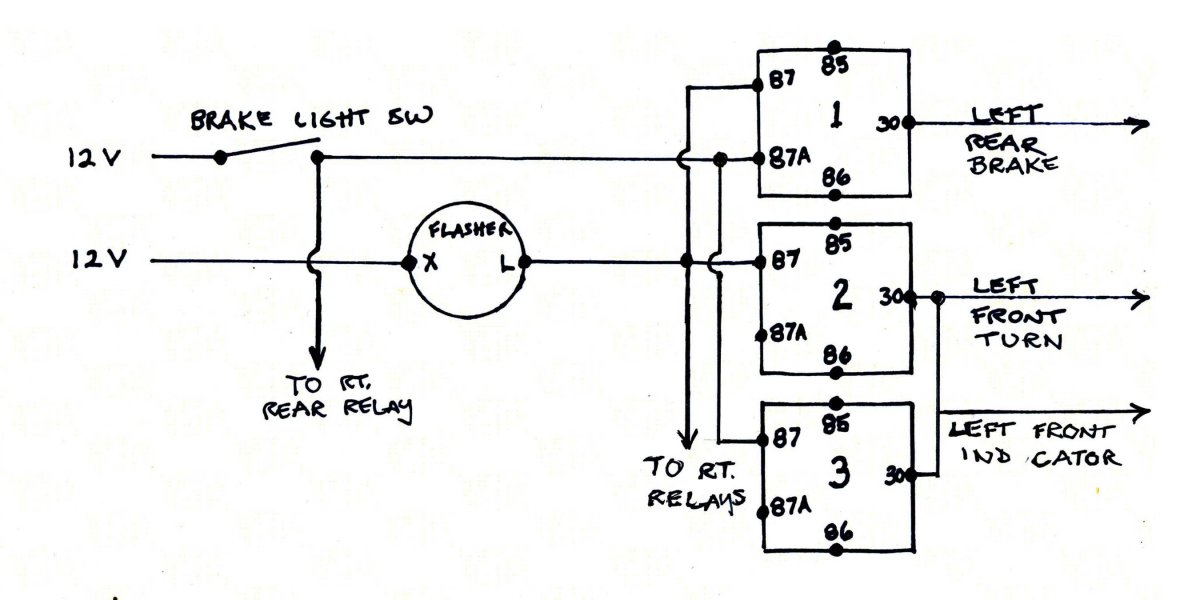 BRAKE LIGHT SW
12V
TO RT.
REAR RELAY
12V
FLASHER
X
L
TO RT.
RELAYS
85
87
1
30
87A
86
LEFT
REAR
BRAKE
85
87
2
30
87A
86
LEFT
FRONT
TURN
85
87
3
30
87A
86
LEFT FRONT
IND CATOR